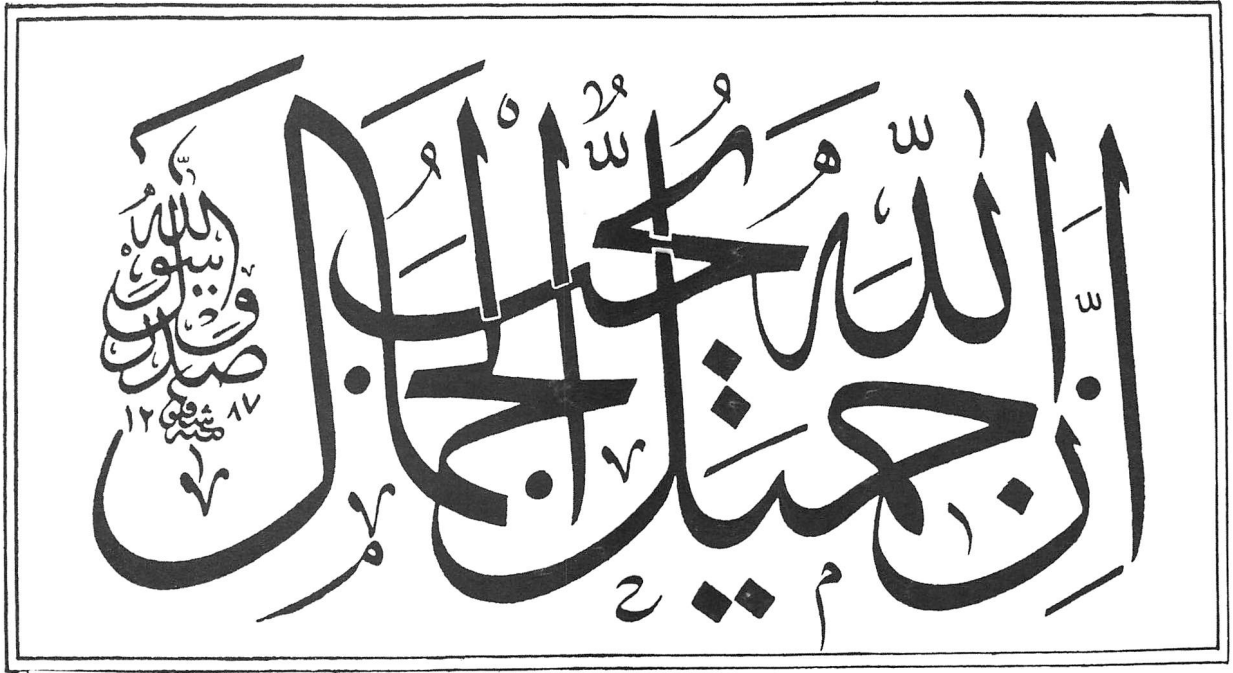 إِنَّ اللَّهَ جَمِيلٌ يُحِبُّ الْجَمَالَ
صدق رسول الله
١٢٨٧